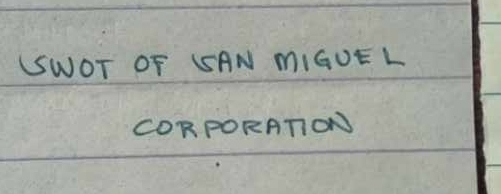 SWOT OF SAN MIGUEL
CORPORATION